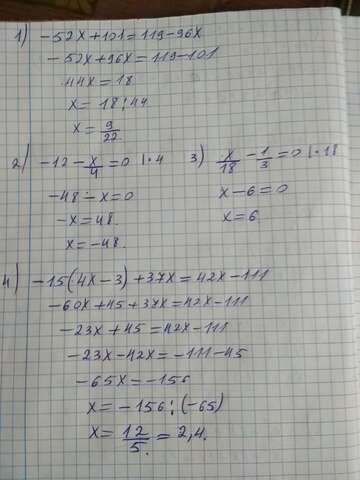 1) -52x+101=119-96x
-52x+96x=119-101
44x=18
x=18:44
x=9/22.
2) -12-x/4=0 |·4
-48-x=0
-x=48.
x=-48.
3) x/18-1/3=0 |·18
x-6=0
x=6
4) -15(4x-3)+37x=42x-111
-60x+45+37x=42x-111
-23x+45=42x-111
-23x-42x=-111-45
-65x=-156
x=-156:(-65)
x=12/5=2,4.